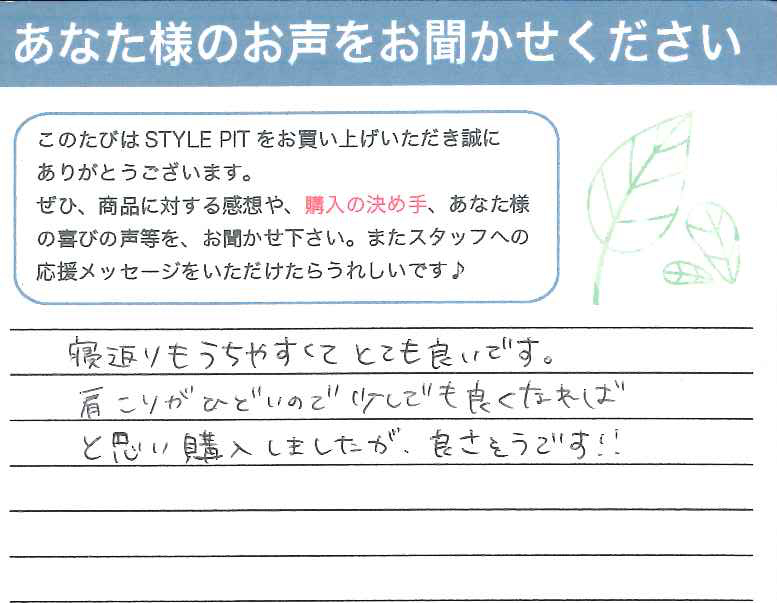 あなた様のお声をお聞かせください
このたびは STYLE PIT をお買い上げいただき誠に
ありがとうございます。
ぜひ、商品に対する感想や、購入の決め手、あなた様
の喜びの声等を、お聞かせ下さい。またスタッフへの
応援メッセージをいただけたらうれしいです♪
寝返りもうちやすくて とても良いです。
肩こりがひどいので少しでも良くなれば
と思い購入しましたが、良さそうです!!